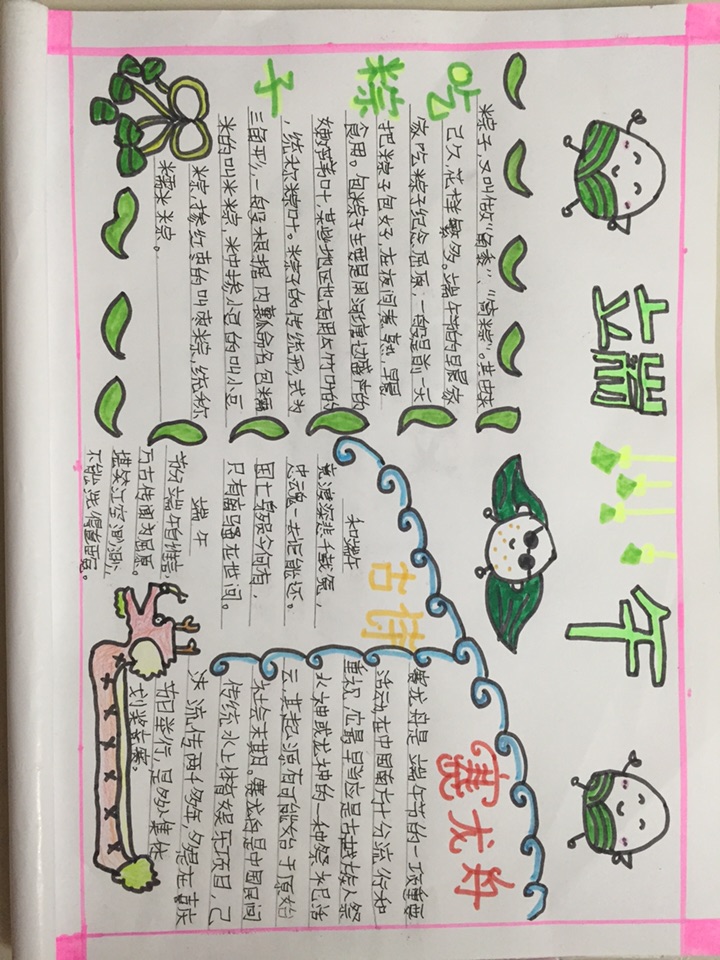 端午
吃粽子
粽子,又叫做“角黍”、“筒粽”。其由来
已久,花样繁多。端午节的早晨家
家吃粽子纪念屈原,一般是前一天
把粽子包好,在夜间煮熟,早晨
食用。包粽子主要是用河塘边盛产的
嫩芦苇叶,某些地区也有用竹叶的
,统称粽叶。粽子的传统形式为
三角形,一般根据内瓤命名,包糯
米的叫米粽,米中掺小豆的叫小豆
粽,掺红枣的叫枣粽,统称
糯米粽。
古诗
和端午
竞渡深悲千载冤,
忠魂一去讵能还。
国亡身殒今何有,
只有离骚在世间。
端午
节分端午自谁言,
万古传闻为屈原。
堪笑江空渺渺,
不能洗得直臣冤。
赛龙舟
赛龙舟是端午节的一项重要
活动,在中国南方十分流行,和
重视,它最早当应是古越族人祭
水神或龙神的一种祭祀活
云,其起源有可能始于原始
社会末期。赛龙舟是中国民间
传统水上体育娱乐项目,已
流传两千多年,多是在喜庆
节日举行,是多人集体
划桨竞赛。